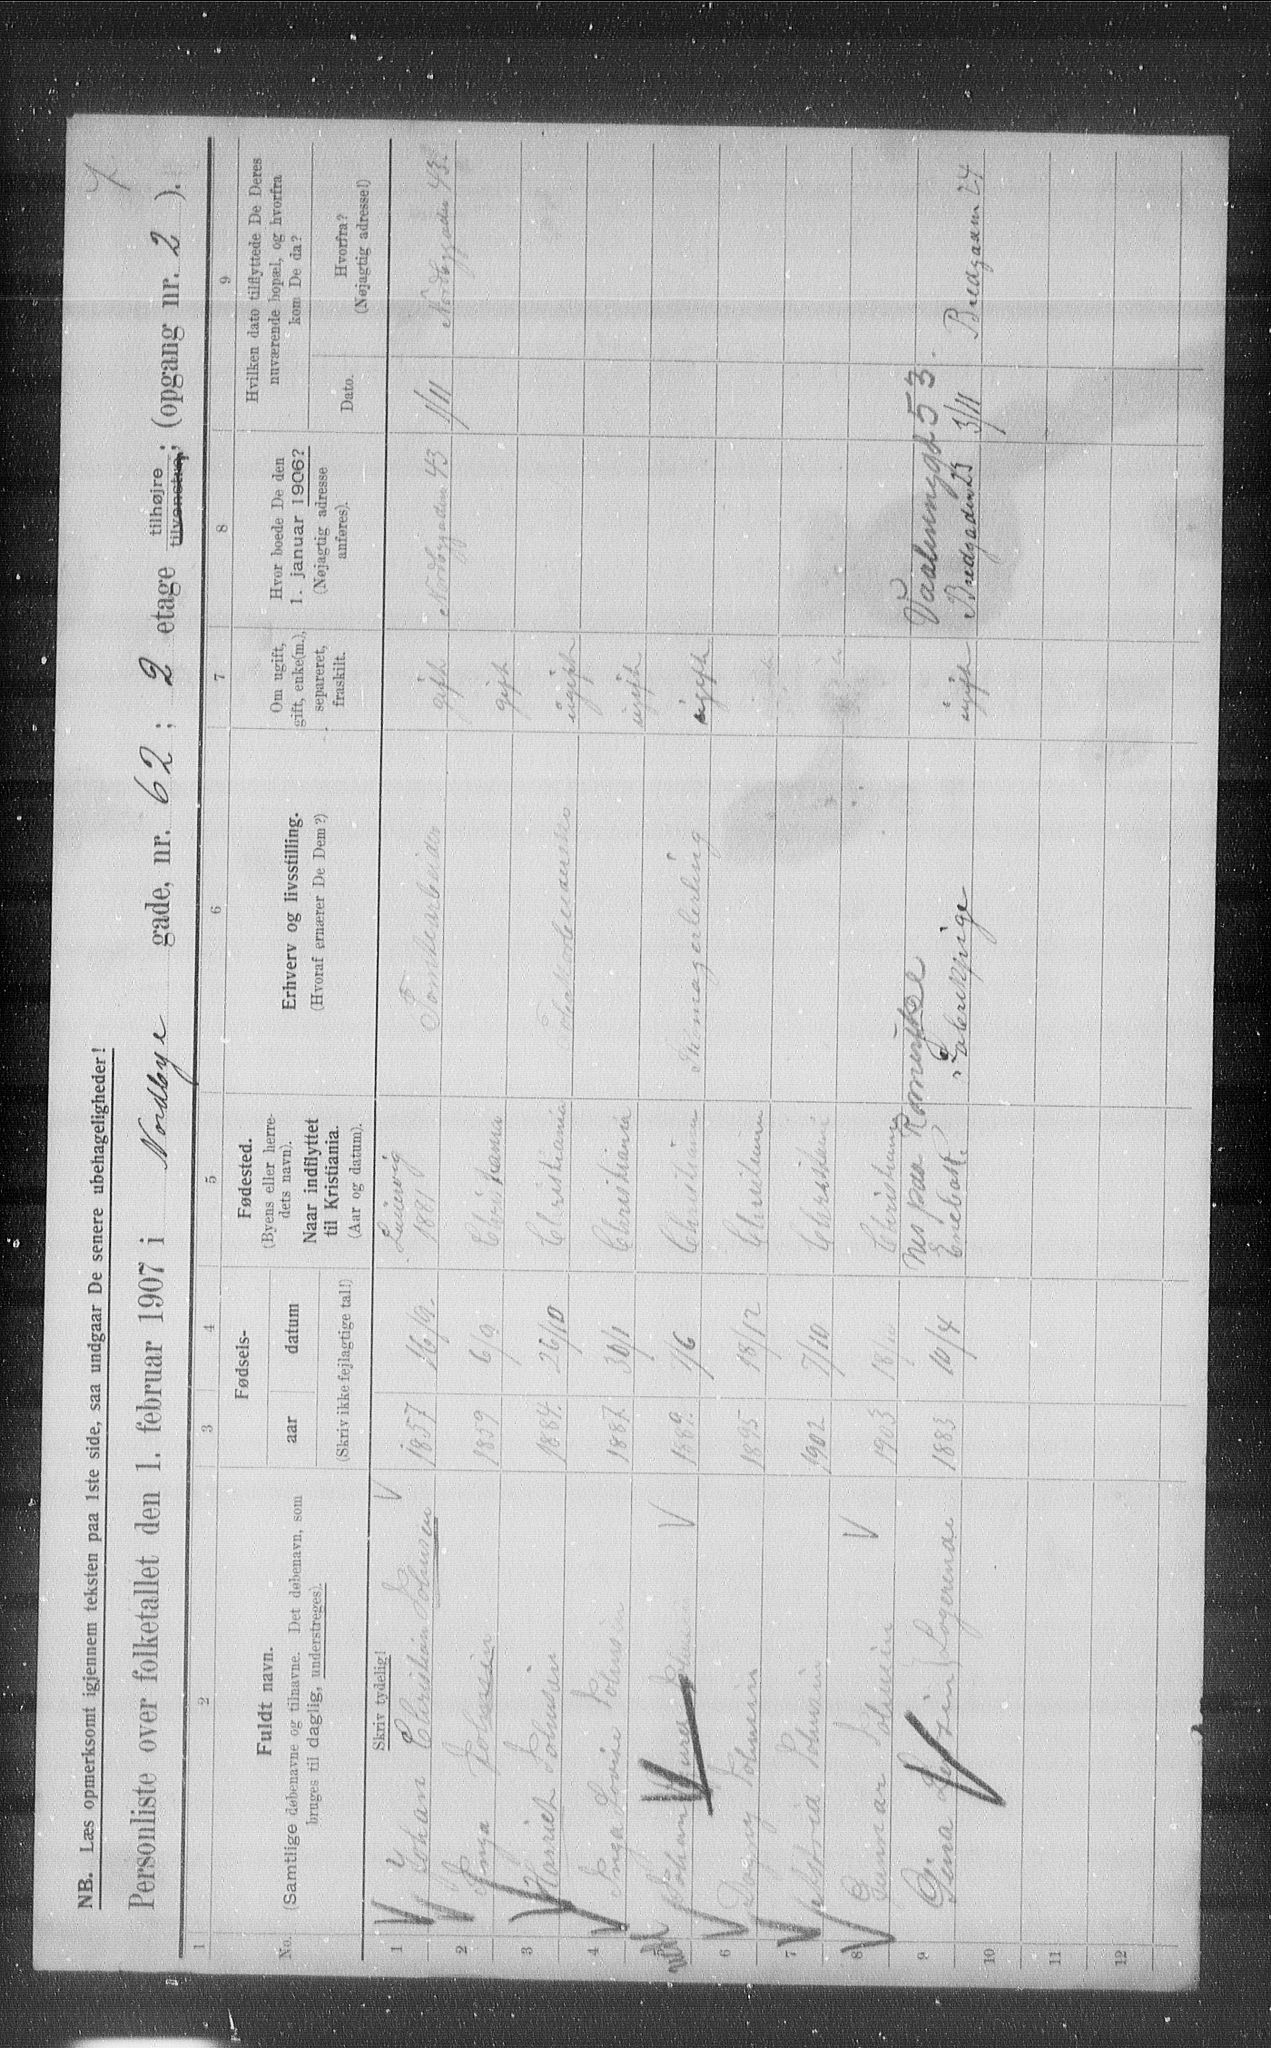 NB. Læs opmerksomt igjennem teksten paa 1ste side, saa undgaar De senere ubehageligheder!
Personliste over folketallet den 1. februar 1907 i Nordbye gade, nr. 62; 2 etage tilhøjre tilvenstre; (opgang nr. 2).
1 2 3 4 5 6 7 8 9
No.
Fuldt navn.
(Samtlige døbenavne og tilnavne. Det døbenavn, som
bruges til daglig, understreges).
Fødsels-
aar datum
(Skriv ikke fejlagtige tal!)
Fødested.
(Byens eller herre-
dets navn).
Naar indflyttet
til Kristiania.
(Aar og datum).
Erhverv og livsstilling.
(Hvoraf ernærer De Dem?)
Om ugift,
gift, enke(m.),
separeret,
fraskilt.
Hvor boede De den
1. januar 1906?
(Nøjagtig adresse
anføres).
Hvilken dato tilflyttede De Deres
nuværende bopæl, og hvorfra
kom De da?
Dato.
Hvorfra?
(Nøjagtig adresse!)
Skriv tydelig!
1 Johan Christian Johnsen 1857 16/9 1881 Tomtearbeider gift Nordbygaden 43 1/11 Nordbygaden 43.
2 Inga Johnsen 1859 6/9 Christiania gift
3 Harriet Johnsen 1884 26/10 Christiania ugift
4 Inga Lovise Johnsen 1887 30/1 Christiania ugift
5 Johan Johnsen 1889 1/6 Christiania ugift
6 Dagny Johnsen 1895 18/12 Christiania
7 Astrid Johnsen 1902 7/10 Christiania
8 Gunnar Johnsen 1903 Christiania
Nes paa Romerike Vaalerenggt 53.
9 Lina Logerende 1883 10/4 Enebak? Fabrikpige ugift Bredgaden 23 3/11 Bredgaden 24
10
11
12